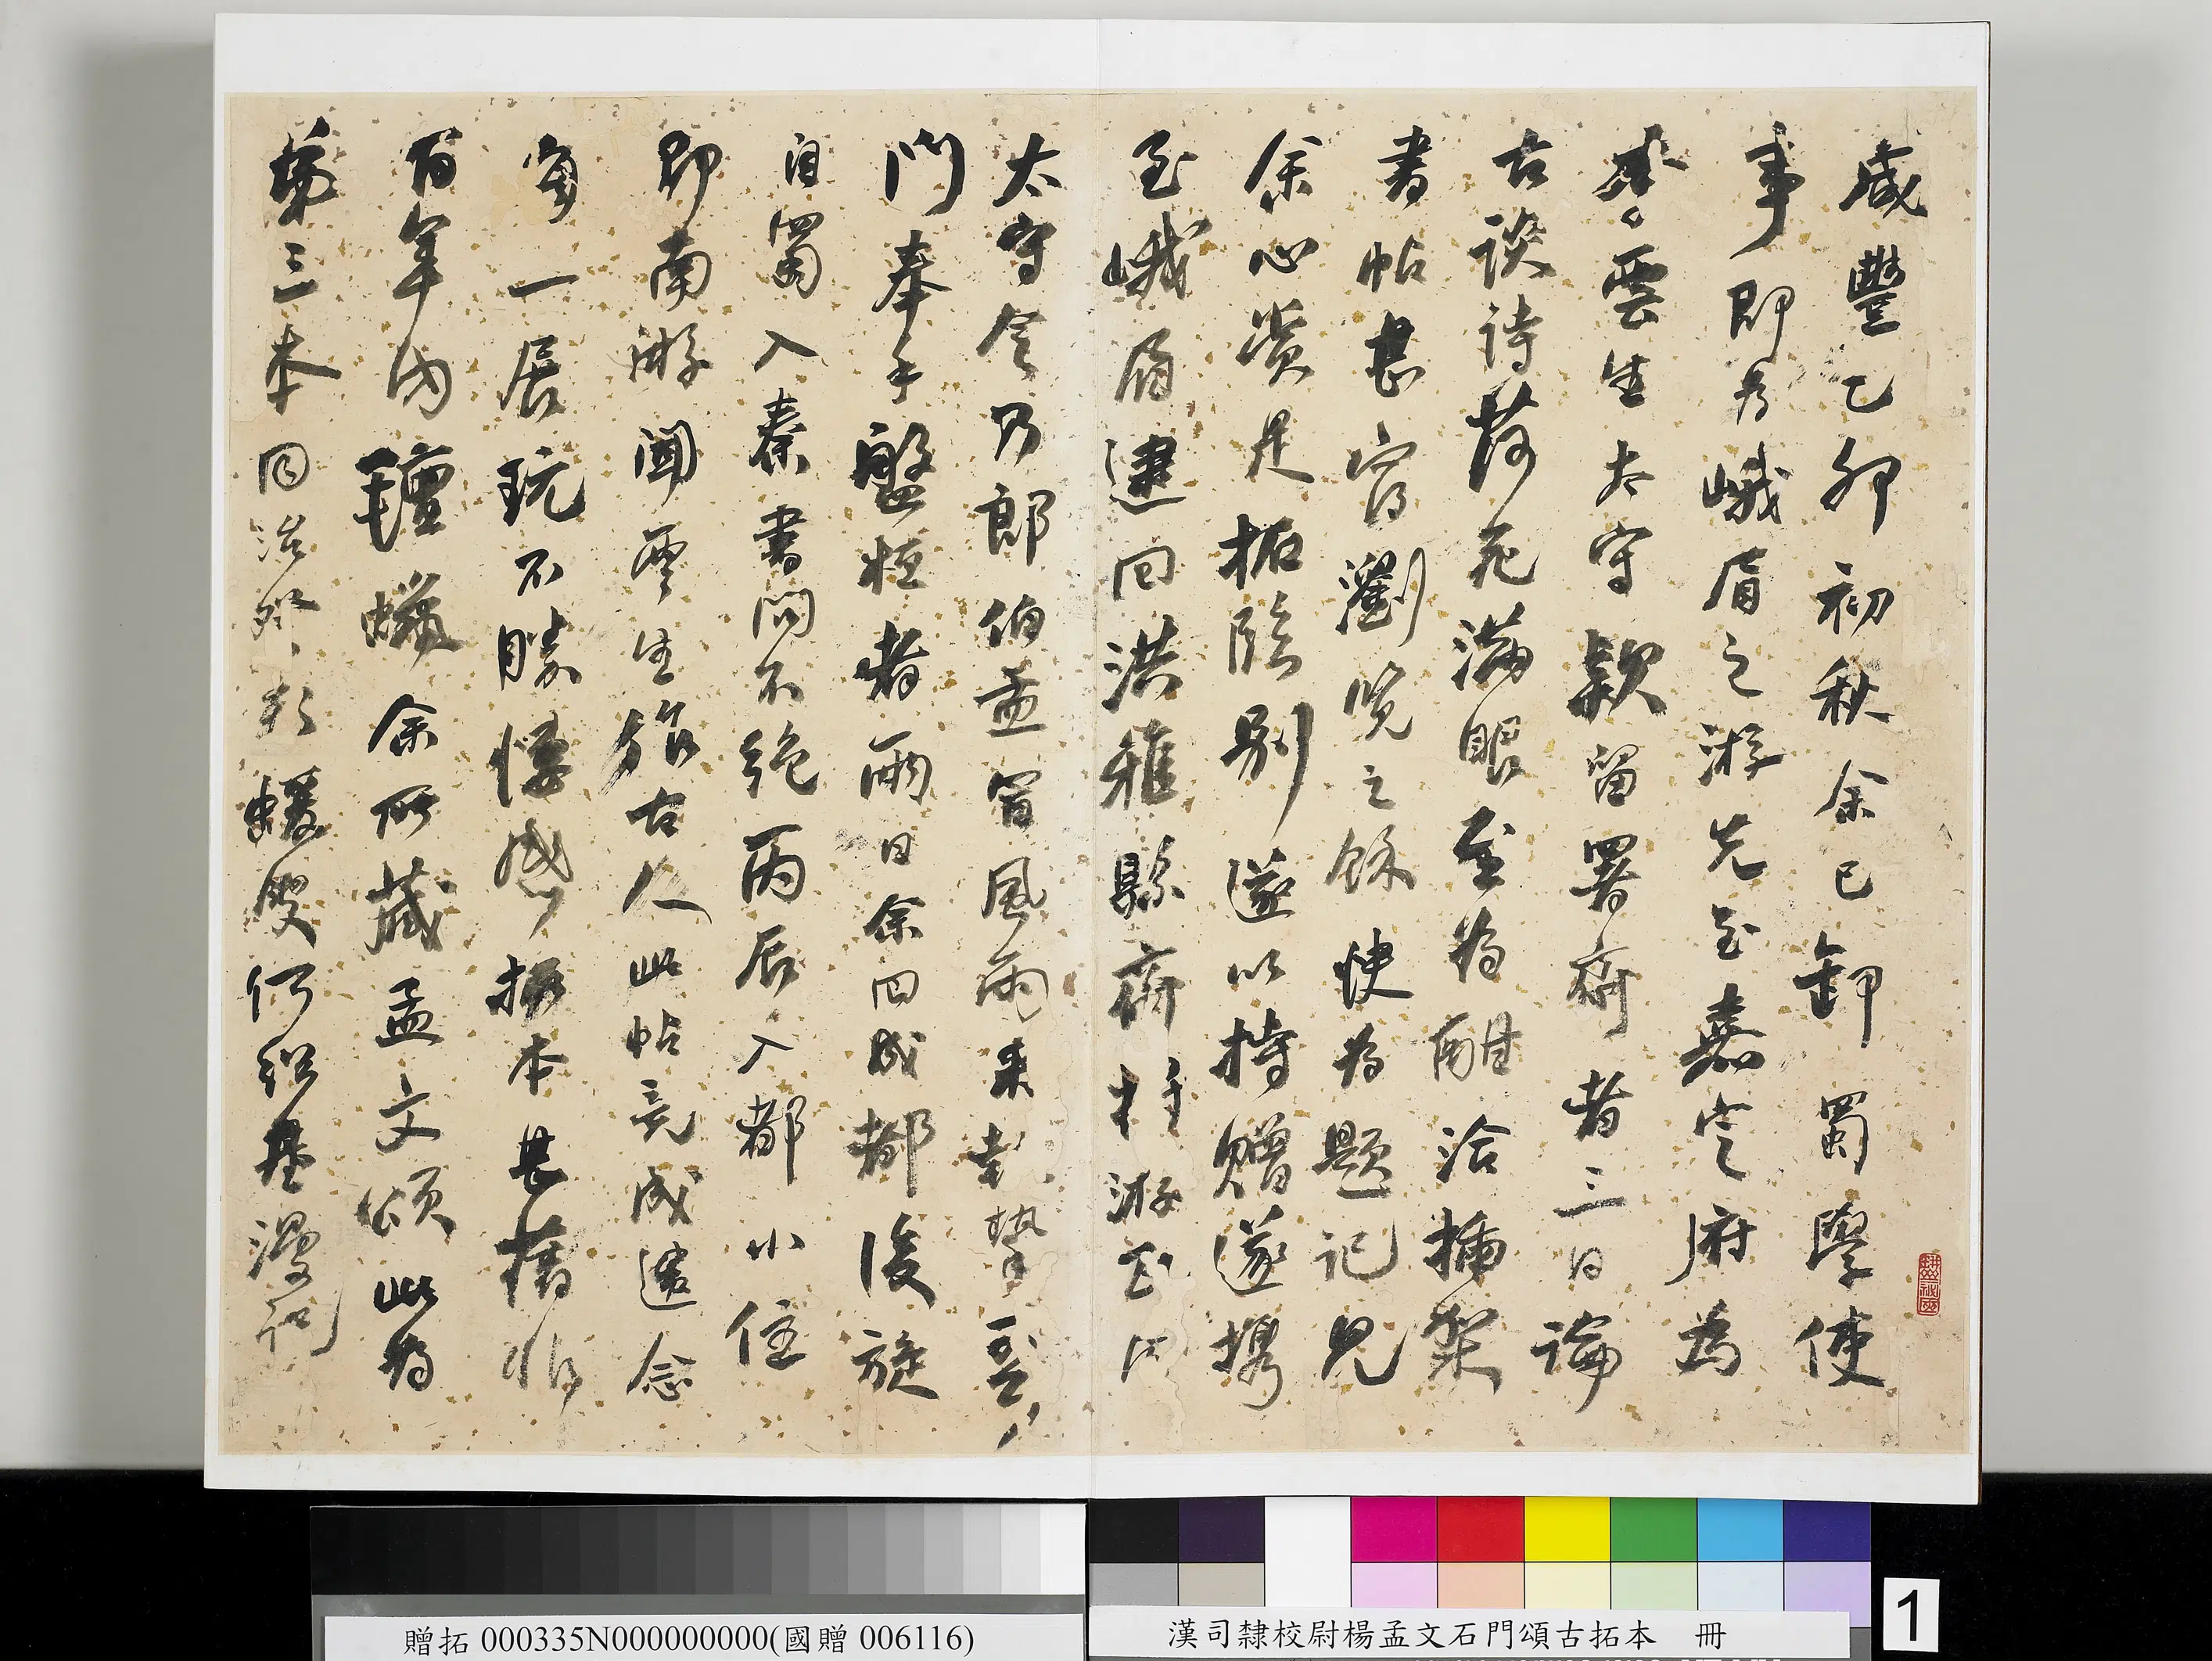 咸豐乙卯初秋余已卸蜀學使
事即為峨眉之游先至嘉定府為
雲生太守款留署齋者三日論
古談詩荷花滿眼至為酣洽插架
書帖甚富瀏覽之餘快為題記見
余心賞是拓臨別遂以持贈遂攜
至峨眉建回洪雅縣齋
太守令乃郎伯孟冒風雨來
門奉手盤桓者兩日余回成都後旋
自蜀入秦書問不絕丙辰入都小住
即南游聞雲生旋古人此帖竟成遺念
每一展玩不勝悽感拓本甚舊非
百年內氈蠟余所藏孟文頌此為
第三本同治 蝯叟何紹基漫記
贈拓 000335N000000000(國贈 006116)
漢司隸校尉楊孟文石門頌古拓本 冊
1